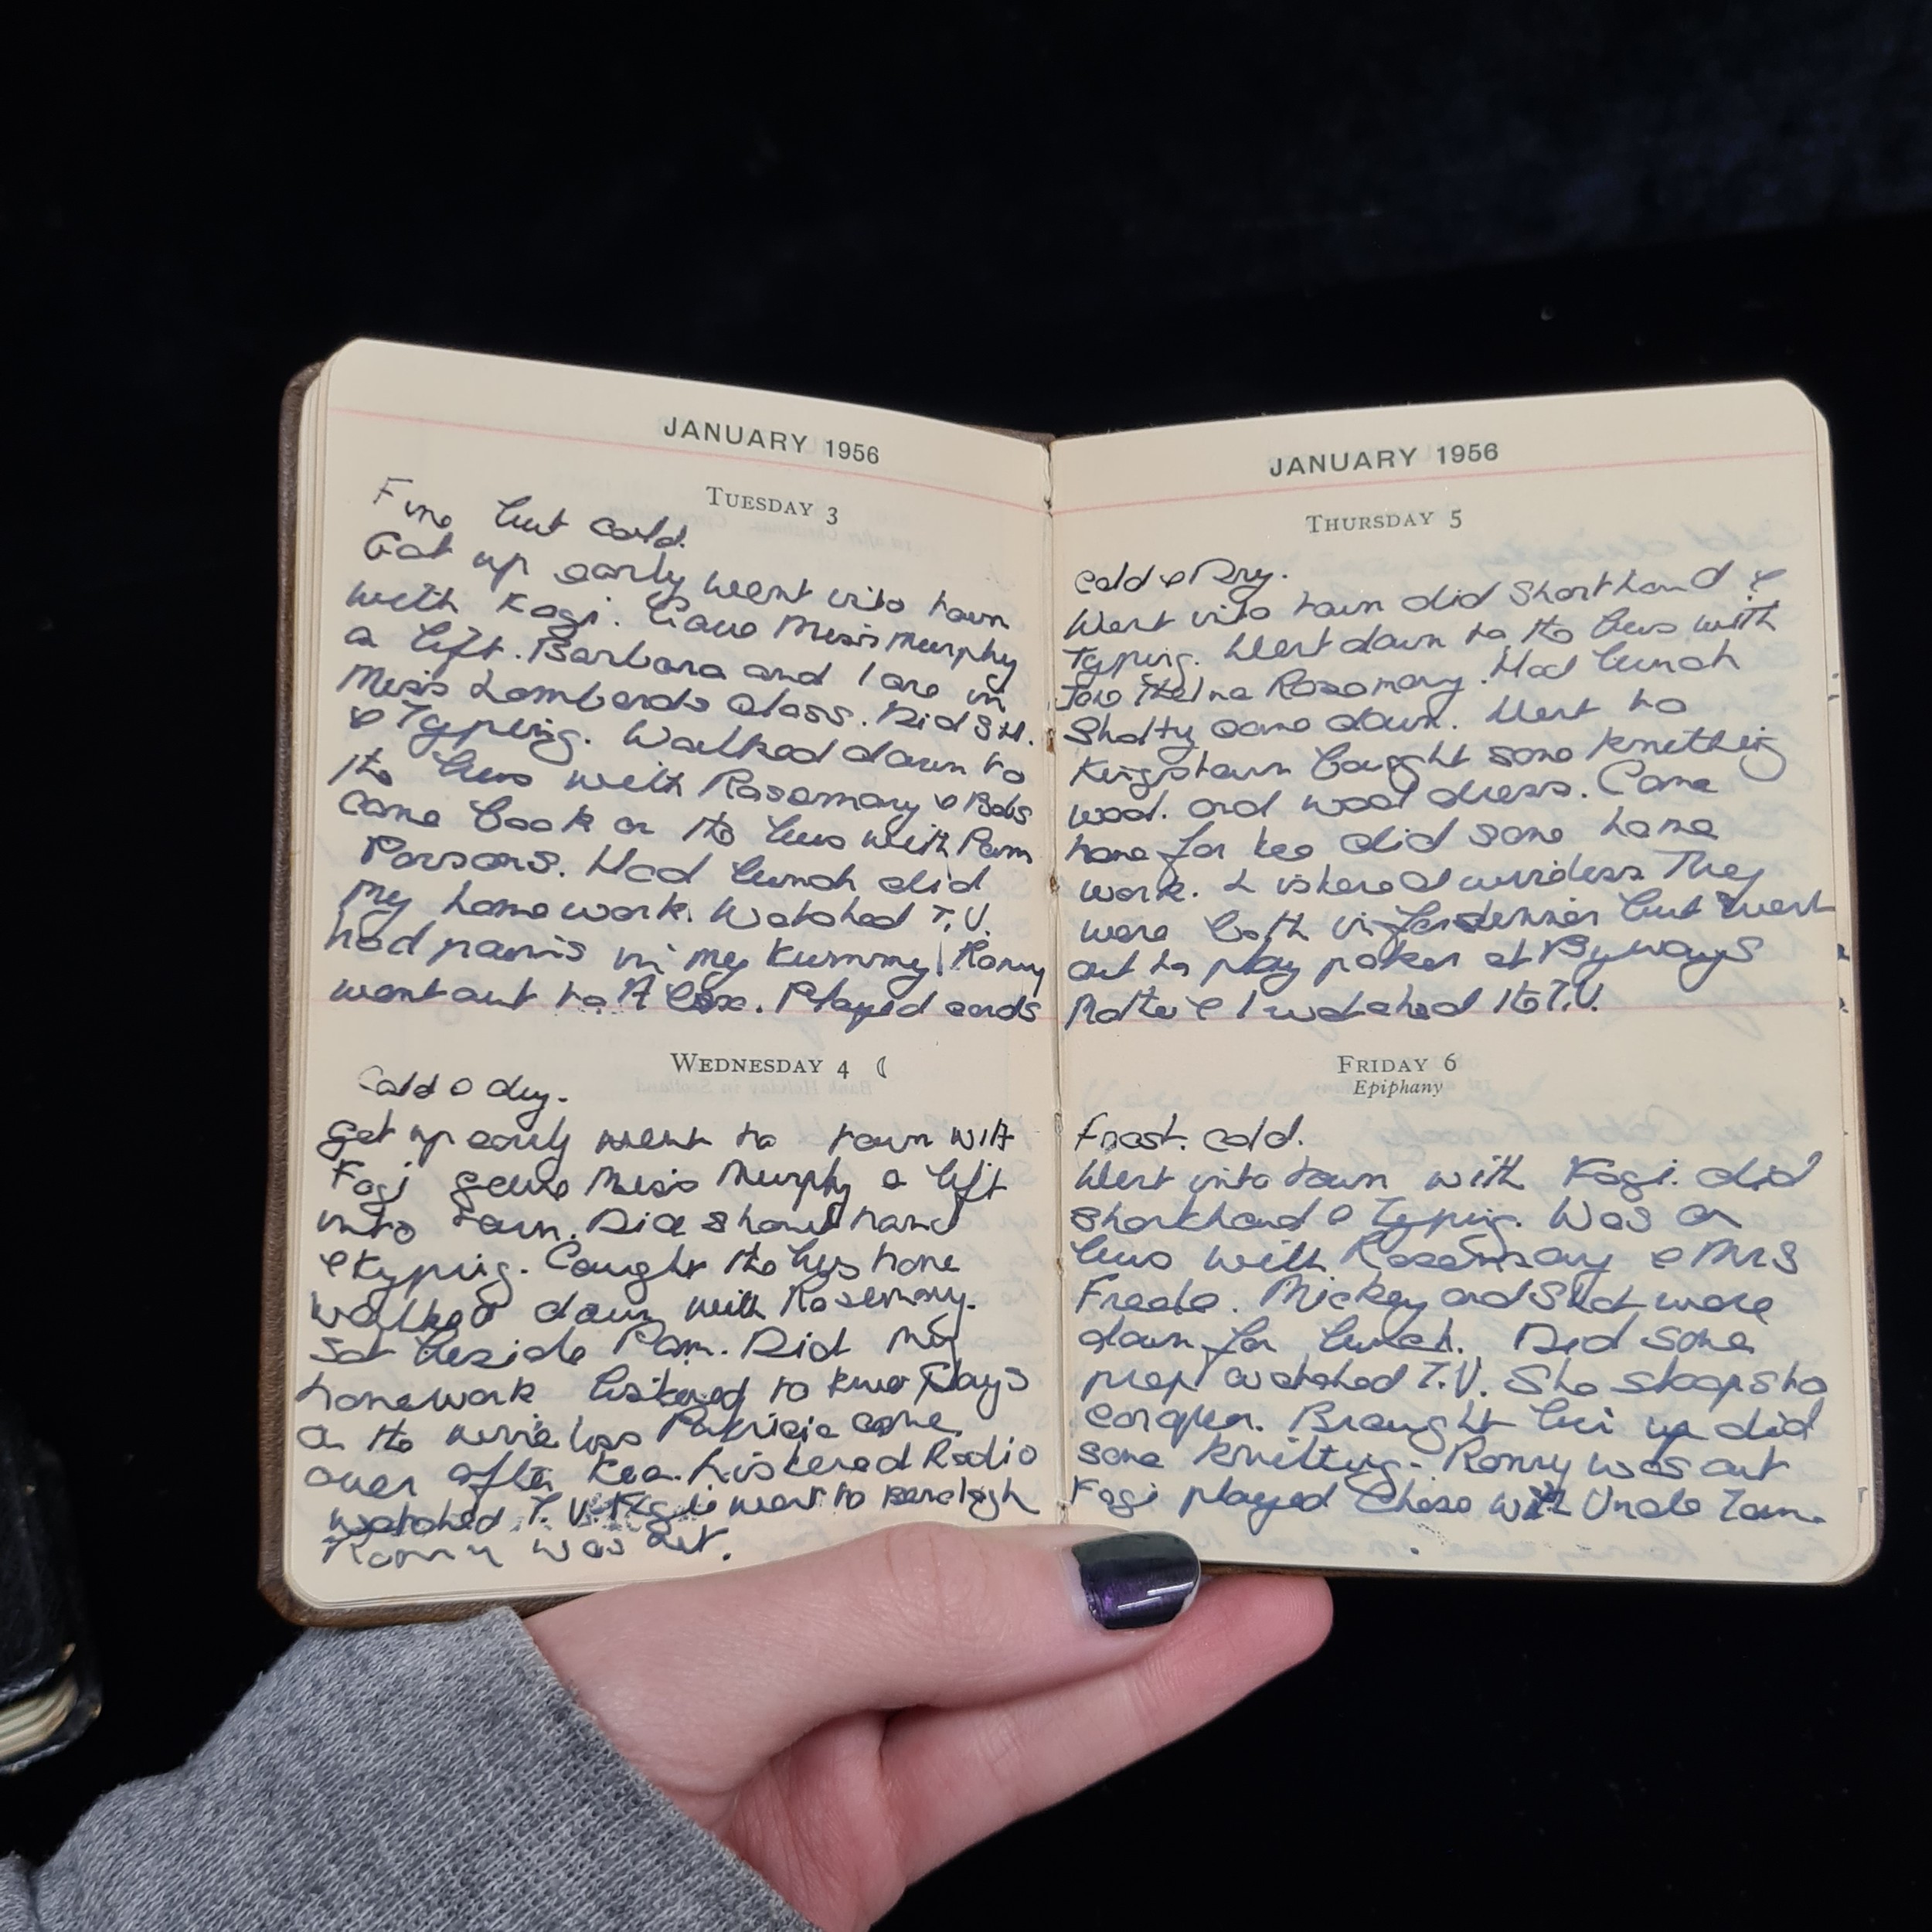 JANUARY 1956
TUESDAY 3
Fine but cold.
Got up early went into town
with Fogi. Gave Miss Murphy
a lift. Barbara and I are in
Miss Lombards Class. Did S.H.
& Typing. Walked down to
the bus with Rosemary & Babs
came back on the bus with Pam
Parsons. Had lunch did
my homework. Watched T.V.
had pains in my tummy! Ronny
went out to A Cox. Played cards
WEDNESDAY 4
Cold & dry.
get up early went to town with
Fogi gave Miss Murphy a lift
into Town. Did short hand
& typing. Caught the bus home
walked down with Rosemary.
Sat beside Pam. Did my
homework listened to two Plays
on the wireless Patricia came
over after tea. Listened Radio
watched T.V. went to
Ronny was out.
JANUARY 1956
THURSDAY 5
Cold & Dry.
Went into town did Shorthand &
Typing. Went down to the bus with
Thelma Rosemary. Had lunch
came down. Went to
Kingstown bought some knitting
wool. and wool dress. Came
home for tea did some home
work. Listened wireless They
were both in for dinner but went
out to play poker at Byways
& I watched the T.V.
FRIDAY 6
Epiphany
Frost. cold.
Went into town with Fogi. did
shorthand & Typing. Was on
bus with Rosemary & Mrs
Mickey and were
down for lunch. Did some
prep watched T.V. She stoops to
conquer. Brought up did
some knitting. Ronny was out
Fogi played Chess with Uncle Tom.